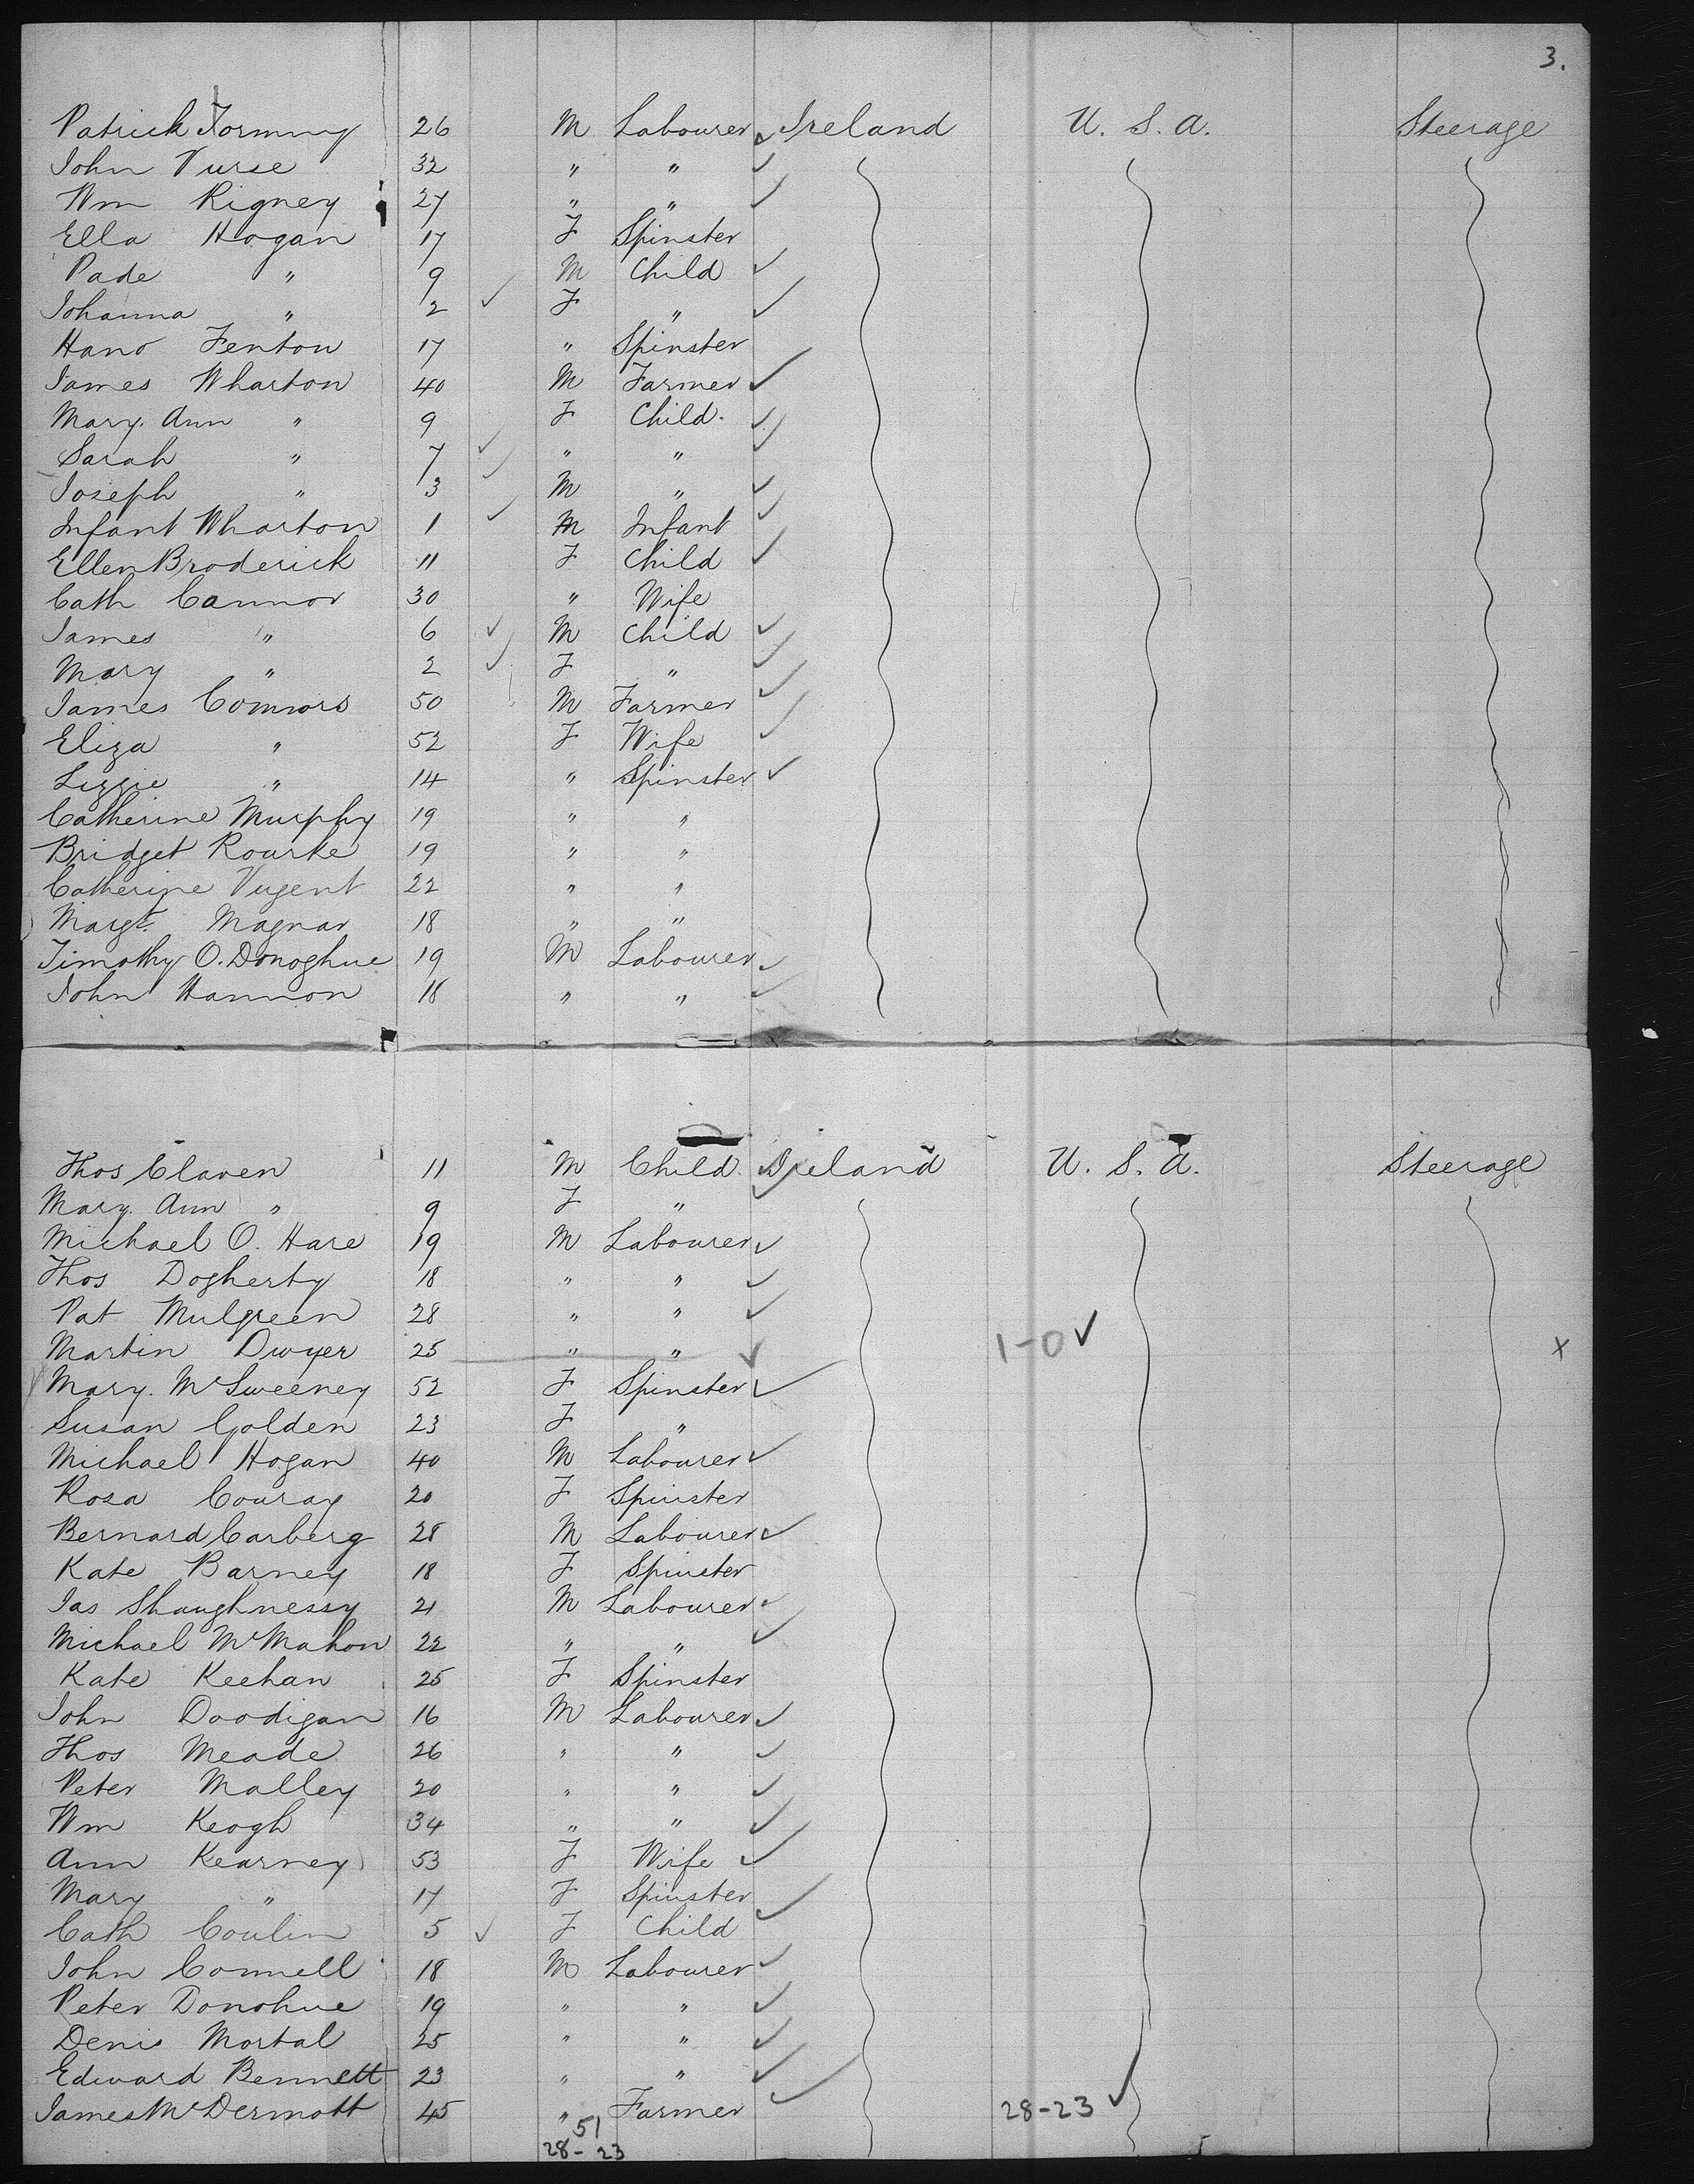 3.
Patrick Tormmy 26 M Labourer Ireland U. S. A. Steerage
John Purse 32 " "
Wm Rigney 27 " "
Ella Hogan 17 F Spinster
Pade " 9 M Child
Johanna " 2 F "
Hano Fenton 17 " Spinster
James Wharton 40 M Farmer
Mary. Ann " 9 F Child.
Sarah " 7 " "
Joseph " 3 M "
Infant Wharton 1 M Infant
Ellen Broderick 11 F Child
Cath Cannor 30 " Wife
James " 6 M Child
Mary " 2 F "
James Connors 50 M Farmer
Eliza " 52 F Wife
Lizzie " 14 " Spinster
Catherine Murphy 19 " "
Bridget Rourke 19 " "
Catherine Nugent 22 " "
Margt. Magnar 18 " "
Timothy O. Donoghue 19 M Labourer
John Hannon 18 " "
Thos Claven 11 M Child Ireland U. S. A. Steerage
Mary. Ann " 9 F "
Michael O. Hare 19 M Labourer
Thos Dogherty 18 " "
Pat Mulgreen 28 " "
Martin Dwyer 25 " " 1-0 x
Mary. McSweeney 52 F Spinster
Susan Golden 23 F "
Michael Hogan 40 M Labourer
Rosa Couray 20 F Spinster
Bernard Carberg 28 M Labourer
Kate Barney 18 F Spinster
Jas Shaughnessy 21 M Labourer
Michael McMahon 22 " "
Kate Keehan 25 F Spinster
John Doodigan 16 M Labourer
Thos Meade 26 " "
Peter Malley 20 " "
Wm Keogh 34 " "
Ann Kearney 53 F Wife
Mary " 17 F Spinster
Cath Coulin 5 F Child
John Connell 18 M Labourer
Peter Donohue 19 " "
Denis Mortal 25 " "
Edward Bennett 23 " "
James McDermott 45 " Farmer 28-23
51
28-23